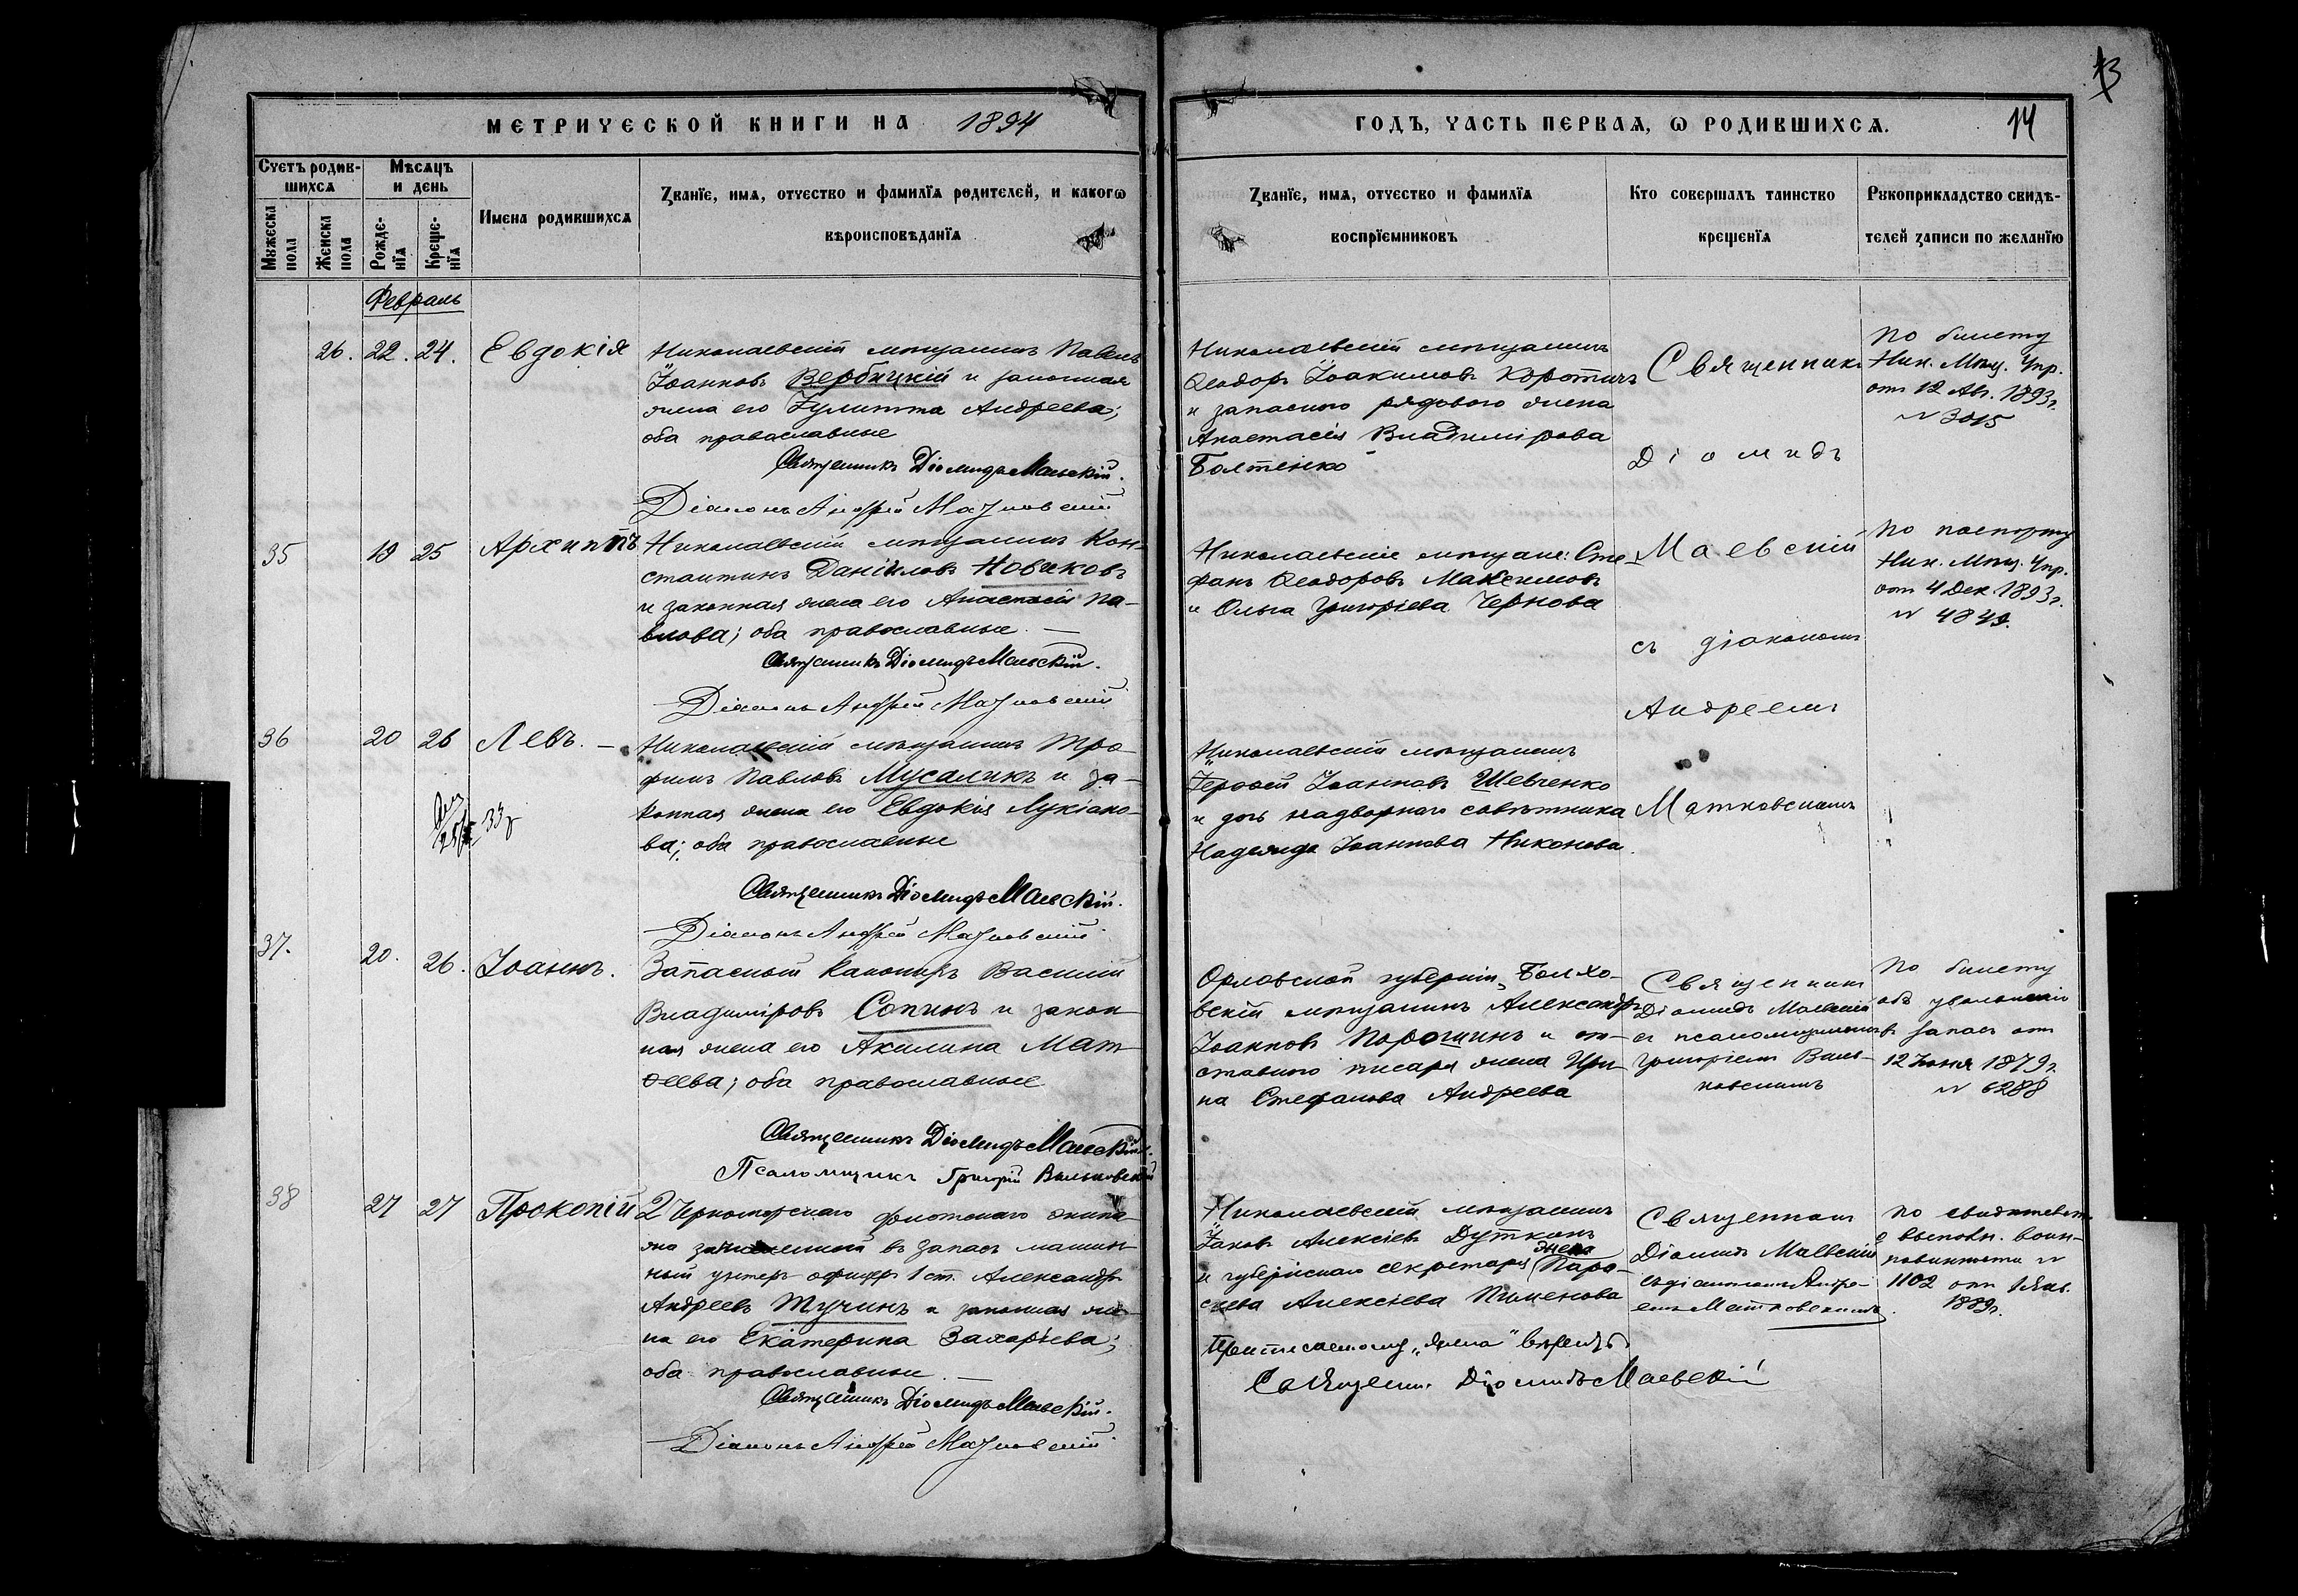 13
МЕТРИЧЕСКОЙ КНИГИ НА 1894
ГОДЪ, ЧАСТЬ ПЕРВАѦ, Ѡ РОДИВШИХСѦ.
14
Счетъ родив-
шихсѧ
Мѣсѧцъ
и день
Мꙋжеска
пола
Женска
пола
Рожде-
нїѧ
Креще-
нїѧ
Имена родившихсѧ
Званїе, имѧ, отчество и фамилїѧ родителей, и какогѡ
вѣроисповѣданїѧ
Званїе, имѧ, отчество и фамилїѧ
воспрїемниковъ
Кто совершалъ таинство
крещенїѧ
Рꙋкоприкладство свидѣ-
телей записи по желанїю
Февраль
26. 22. 24. Евдокія
Николаевскій мѣщанинъ Павелъ
Іоанновъ Вербицкій и законная
жена его Іулитта Андреева;
оба православные
Священникъ Діомидъ Маевскій.
Діаконъ Андрей Матковскій
Николаевскій мѣщанинъ
Ѳеодоръ Іоакимовъ Коротичъ
и запаснаго рядового жена
Анастасія Владимірова
Болтенко
Священникъ
Діомидъ
По билету
Ник. Мѣщ. Упр.
отъ 12 Авг. 1893 г.
№ 3015
35 19 25 Архиппъ
Николаевскій мѣщанинъ Кон-
стантинъ Даніиловъ Новиковъ
и законная жена его Анастасія Па-
влова; оба православные. —
Священникъ Діомидъ Маевскій.
Діаконъ Андрей Матковскій
Николаевскіе мѣщане: Сте-
фанъ Ѳеодоровъ Максимовъ
и Ольга Григоріева Чернова
Маевскій
съ діакономъ
Андреемъ
По паспорту
Ник. Мѣщ. Упр.
отъ 4 Дек. 1893 г.
№ 4849.
36 20 26 Левъ. —
33 г
Николаевскій мѣщанинъ Тро-
фимъ Павловъ Мусаликъ и за-
конная жена его Евдокія Лукіано-
ва; оба православные
Священникъ Діомидъ Маевскій.
Діаконъ Андрей Матковскій
Николаевскій мѣщанинъ
Іероѳей Іоанновъ Шевченко
и дочь надворнаго совѣтника
Надежда Іоаннова Никонова.
Матковскимъ
37. 20. 26. Іоаннъ.
Запасный канониръ Василій
Владиміровъ Сопинъ и закон-
ная жена его Акилина Мат-
ѳеева; оба православные
Священникъ Діомидъ Маевскій.
Псаломщикъ Григорій Вальковскій
Орловской губерніи, Болхо-
вскій мѣщанинъ Александръ
Іоанновъ Порошинъ и от-
ставного писаря жена Ири-
на Стефанова Андреева
Священникъ
Діомидъ Маевскій
съ псаломщикомъ
Григоріемъ Валь-
ковскимъ
По билету
объ увольненіи
въ запасъ отъ
12 Іюня 1879 г.
№ 6288
38 27 27 Прокопій
2 Черноморскаго флотскаго экипа-
жа зачисленный въ запасъ машин-
ный унтеръ офицеръ 1 ст. Александръ
Андреевъ Тучинъ и законная же-
на его Екатерина Захарьева;
оба православные. —
Священникъ Діомидъ Маевскій.
Діаконъ Андрей Матковскій
Николаевскій мѣщанинъ
Іаковъ Алексіевъ Дутканъ
жена
и губернскаго секретаря Пара-
скева Алексіева Пименова
Приписанному „жена" вѣрить
Священн. Діомидъ Маевскій
Священникъ
Діомидъ Маевскій
съ діакономъ Андре-
емъ Матковскимъ.
По свидѣтельст.
о выполн. воин-
повинности №
1102 отъ 1 Янв.
1889 г.